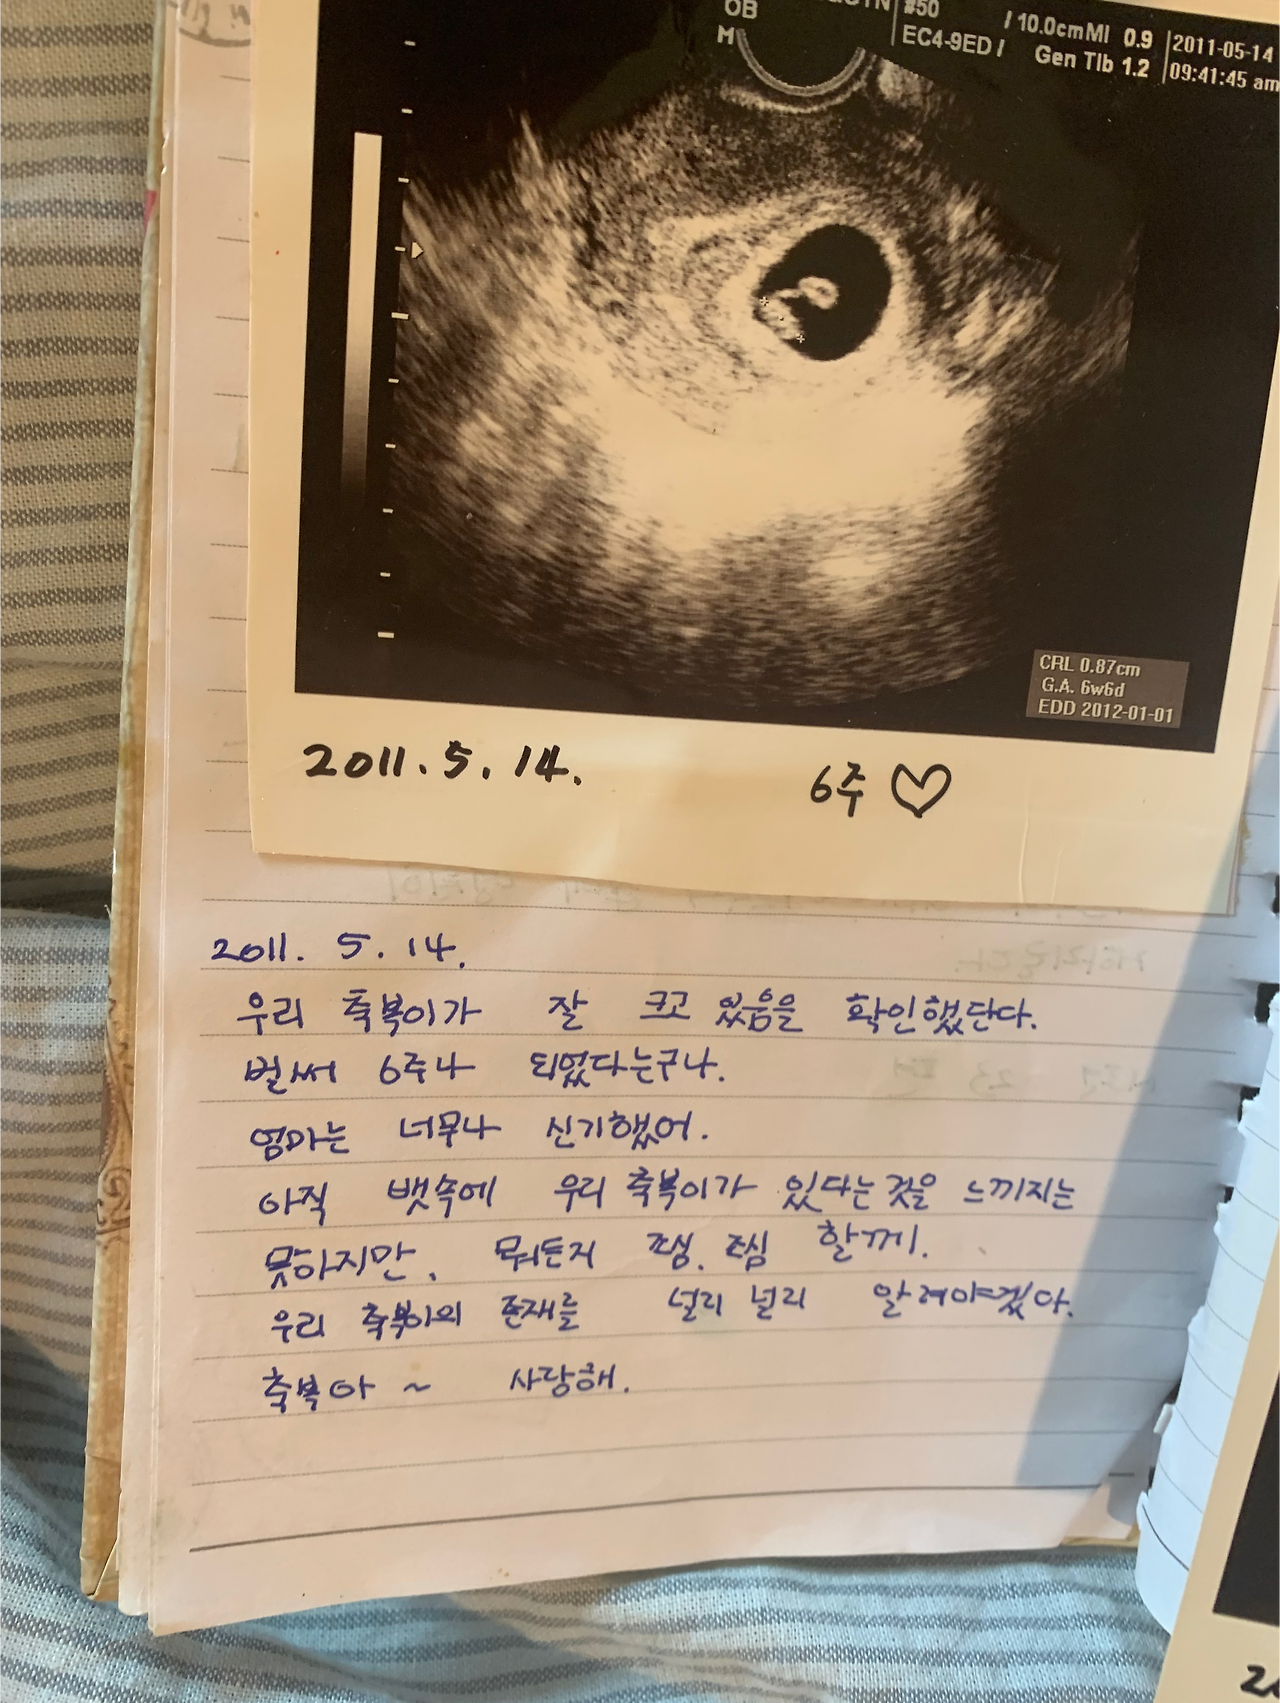 OB
#50
/ 10.0cm MI 0.9
2011-05-14
M
EC4-9ED /
Gen TIb 1.2
09:41:45 am
CRL 0.87cm
G.A. 6w6d
EDD 2012-01-01
2011.5.14.
6주 ♡
2011. 5. 14.
우리 축복이가 잘 크고 있음을 확인했단다.
벌써 6주나 되었다는구나.
엄마는 너무나 신기했어.
아직 뱃속에 우리 축복이가 있다는 것을 느끼지는
못하지만, 뭐든지 조심. 조심 할께.
우리 축복이의 존재를 널리 널리 알려야겠다.
축복아 ~ 사랑해.